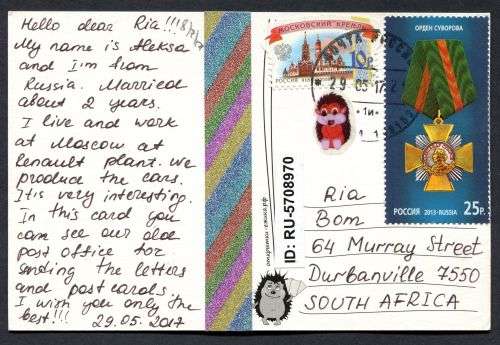 Hello dear Ria!!!
My name is Aleksa
and I'm from
Russia. Married
about 2 years.
I live and work
at Moscow at
Renault plant. We
produce the cars.
It is very interesting.
In this card you
can see our old
post office for
sending the letters
and postcards.
I wish you only the
best!!!
29.05.2017
ID: RU-5708970
МОСКОВСКИЙ КРЕМЛЬ
10р
ПОЧТА РОССИИ
29 05 17 21
ОРДЕН СУВОРОВА
РОССИЯ 2013•RUSSIA
25р.
Ria
Bom
64 Murray Street
Durbanville 7550
SOUTH AFRICA